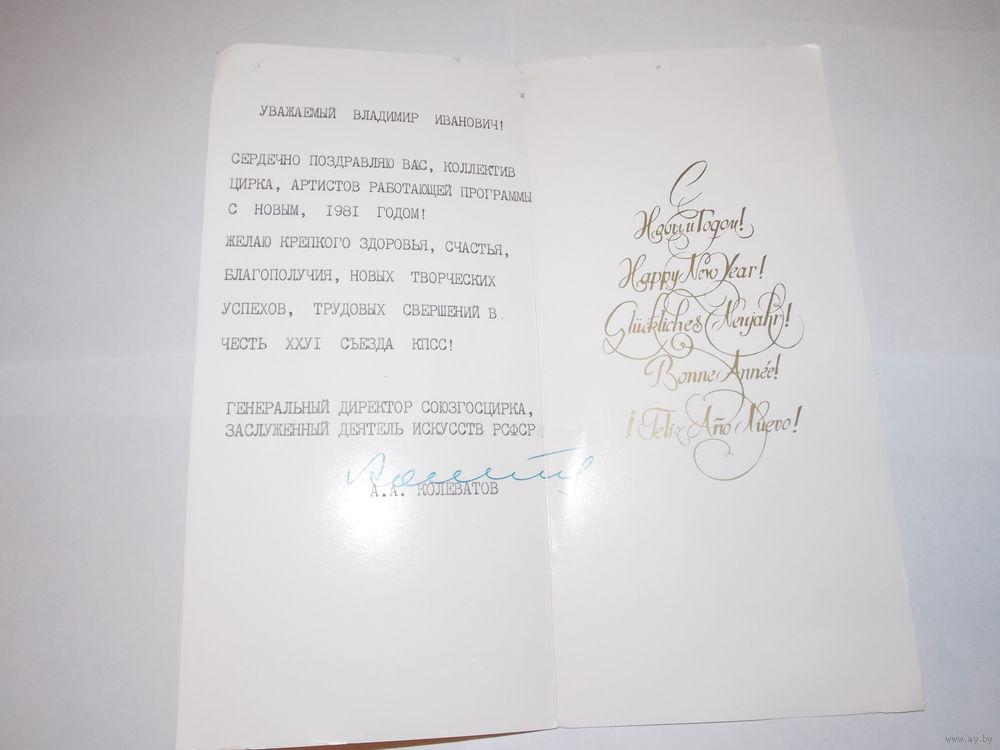 УВАЖАЕМЫЙ ВЛАДИМИР ИВАНОВИЧ!
СЕРДЕЧНО ПОЗДРАВЛЯЮ ВАС, КОЛЛЕКТИВ
ЦИРКА, АРТИСТОВ РАБОТАЮЩЕЙ ПРОГРАММЫ
С НОВЫМ, I98I ГОДОМ!
ЖЕЛАЮ КРЕПКОГО ЗДОРОВЬЯ, СЧАСТЬЯ,
БЛАГОПОЛУЧИЯ, НОВЫХ ТВОРЧЕСКИХ
УСПЕХОВ, ТРУДОВЫХ СВЕРШЕНИЙ В
ЧЕСТЬ ХХУI СЪЕЗДА КПСС!
ГЕНЕРАЛЬНЫЙ ДИРЕКТОР СОЮЗГОСЦИРКА,
ЗАСЛУЖЕННЫЙ ДЕЯТЕЛЬ ИСКУССТВ РСФСР
А.А. КОЛЕВАТОВ
С
Новым Годом!
Happy New Year!
Glückliches Neujahr!
Bonne Année!
¡Feliz Año Nuevo!
www.ay.by